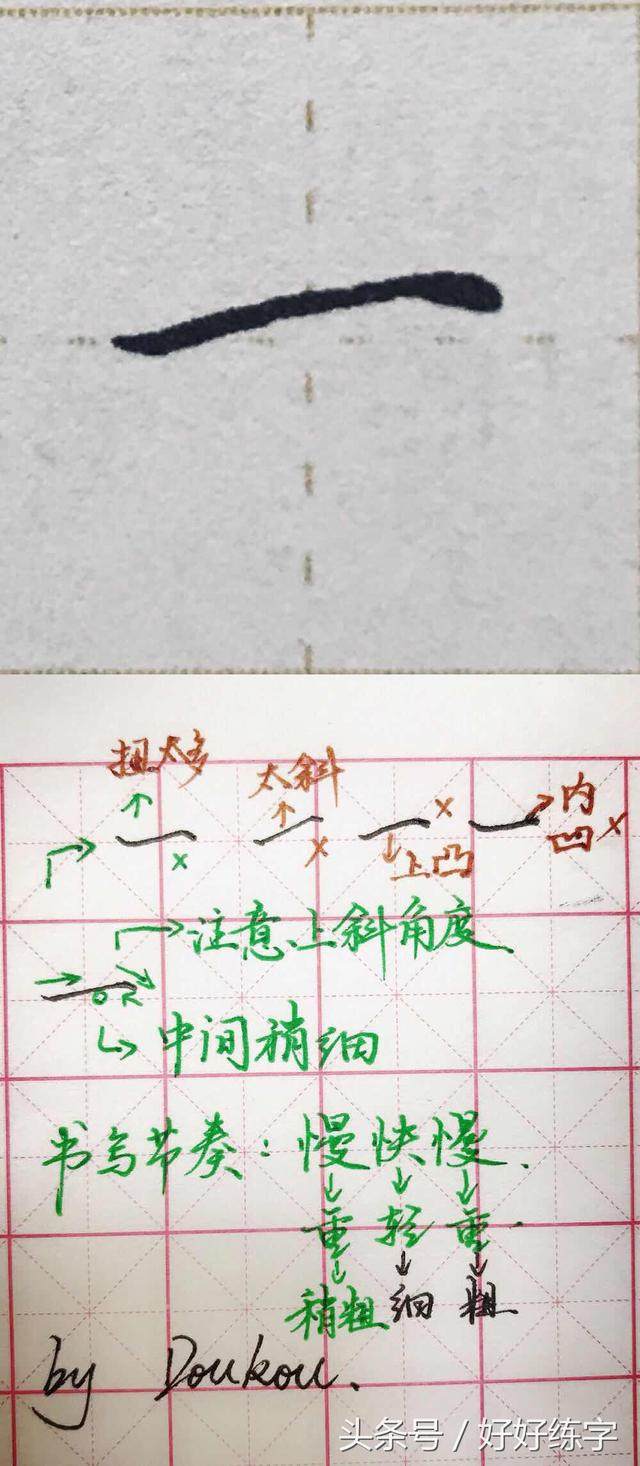 一
扭太多
太斜
上凸
内凹
注意上斜角度
中间稍细
书写节奏：慢快慢.
重 轻 重.
稍粗 细 粗
by Doukou.
头条号 / 好好练字